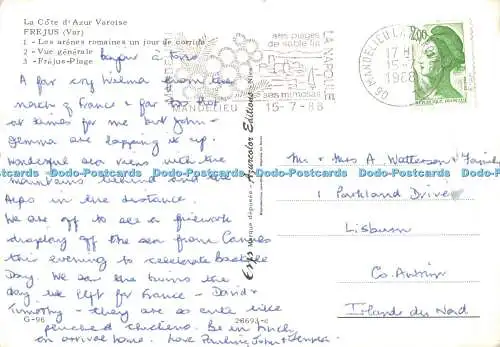 La Côte d'Azur Varoise
FREJUS (Var)
1 - Les arènes romaines un jour de corrida
2 - Vue générale
3 - Fréjus-Plage
Bonjour à tous
A far cry Wilma from the
march of France & far too hot
at times for me but John &
Jemma are lapping it up.
Wonderful sea views with the
mountains behind and the
Alps in the distance.
We are off to see a firework
display off the sea from Cannes
this evening to celebrate Bastille
Day. We saw the twins the
day we left for France - David &
Timothy - they are so cute like
chickens. Be in touch
on arrival home. Love Pauline, John & Jemma
G-96
26693-c
MANDELIEU
15-7-88
ses plages
de sable fin
ses mimosas
LA NAPOULE
06 MANDELIEU LA
17 H
15-7
1988
Azurcolor Editions
marque déposée
Mr & Mrs A Watterson & Family
1 Parkland Drive
Lisburn
Co. Antrim
Irlande du Nord
Dodo-Postcards Dodo-Postcards Dodo-Postcards Dodo-Postcards Dodo-Postcards